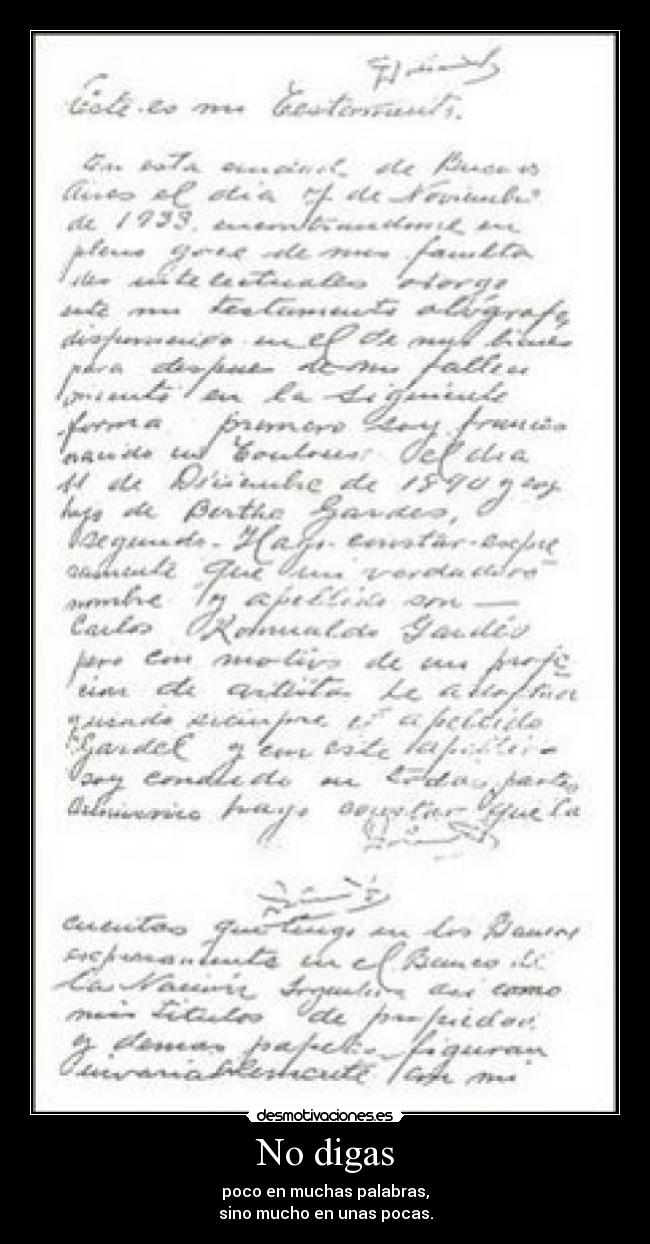 Este es mi Testamento.
En esta ciudad de Buenos
Aires el día 7 de Noviembre
de 1933. encontrandome en
pleno goce de mis faculta
des intelectuales otorgo
este mi testamento ológrafo,
disponiendo en el de mis bienes
para despues de mi falleci
miento en la siguiente
forma primero soy frances
nacido en Toulouse el dia
11 de Diciembre de 1890 y soy
hijo de Berthe Gardes,
segundo. Hago constar expre
samente que mi verdadero
nombre y apellido son —
Carlos Romualdo Gardés
pero con motivo de mi profe
cion de artista he adoptado
usando siempre el apellido
Gardel y con este apellido
soy conocido en todas partes
hago constar que la
cuentas que tengo en los Bancos
especialmente en el Banco de
la Nación Argentina asi como
mis titulos de propiedad
y demas papeles figuran
invariablemente con mi
desmotivaciones.es
No digas
poco en muchas palabras,
sino mucho en unas pocas.